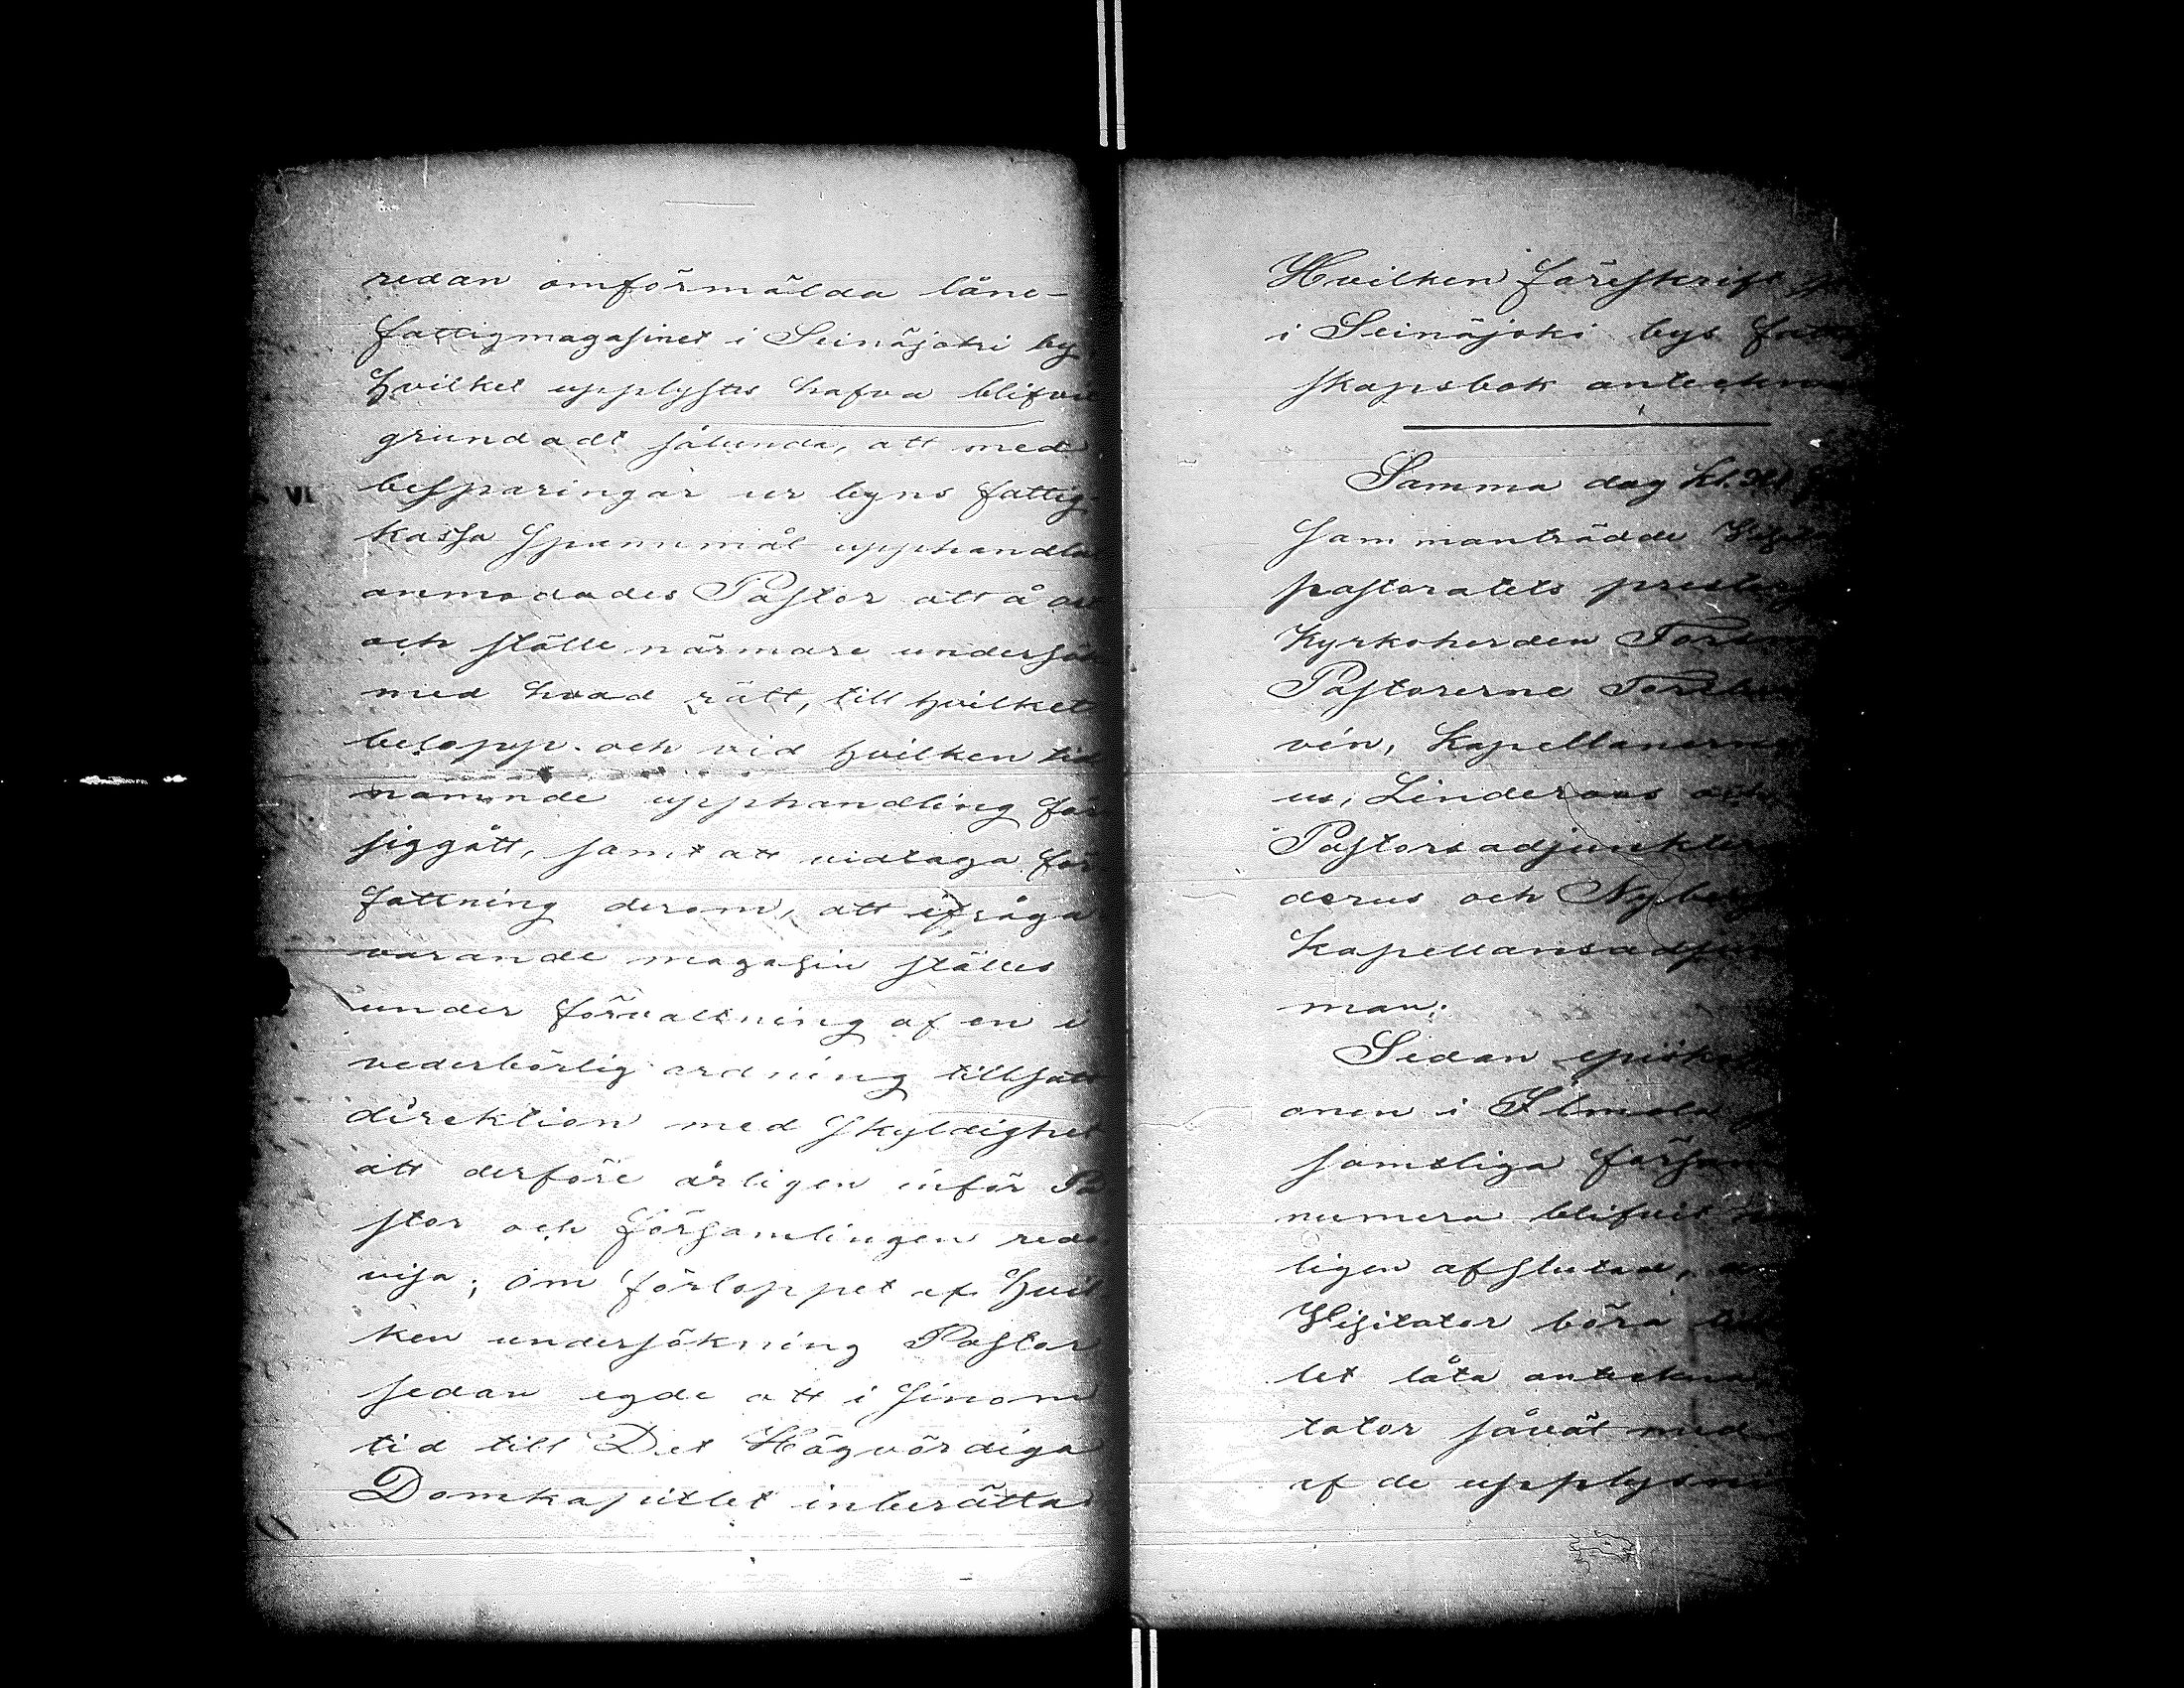 redan omförmälda låne-
fattigmagasinet i Seinäjoki by,
hvilket upplystes hafva blifvit
grundadt sålunda, att med
VI besparingar ur byns fattig-
kassa spannmål upphandla
anmodades Pastor att å ort
och ställe närmare undersök
med hvad rätt, till hvilket
belopp och vid hvilken tid
nämnde upphandling för
siggått, samt att vidtaga för
fattning derom, att ifråga
varande magasin ställes
under förvaltning af en i
vederbörlig ordning tillsatt
direktion med skyldighet
att derföre årligen inför Pa
stor och församlingen redo
visa; om förloppet af hvil
ken undersökning Pastor
sedan egde att i sinom
tid till Det Högvördiga
Domkapitlet inberätta
Hvilken föreskrift
i Seinäjoki bys
skapsbok anteckna
Samma dag kl.
sammanträdde
pastoratets
Kyrkoherden
Pastorerne
vén, Kapellanerne
us, Linderoos och
Pastorsadjunkter
derus och Nyberg
Kapellansadjun
man;
Sedan
onen i Ilmola
samtliga försam
numera blifvit
ligen afslutad,
Visitator böra
let låta anteckna
tator såväl med
af de upplysni